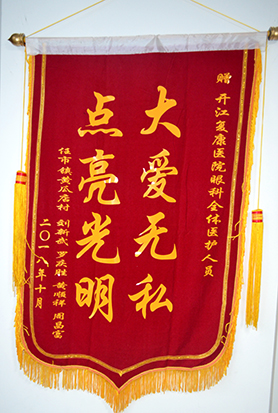 赠 开江复康医院眼科全体医护人员
大爱无私
点亮光明
任市镇黄瓜店村 刘新武 罗庆胜 黄顺禄 周昌富
二〇一八年十月